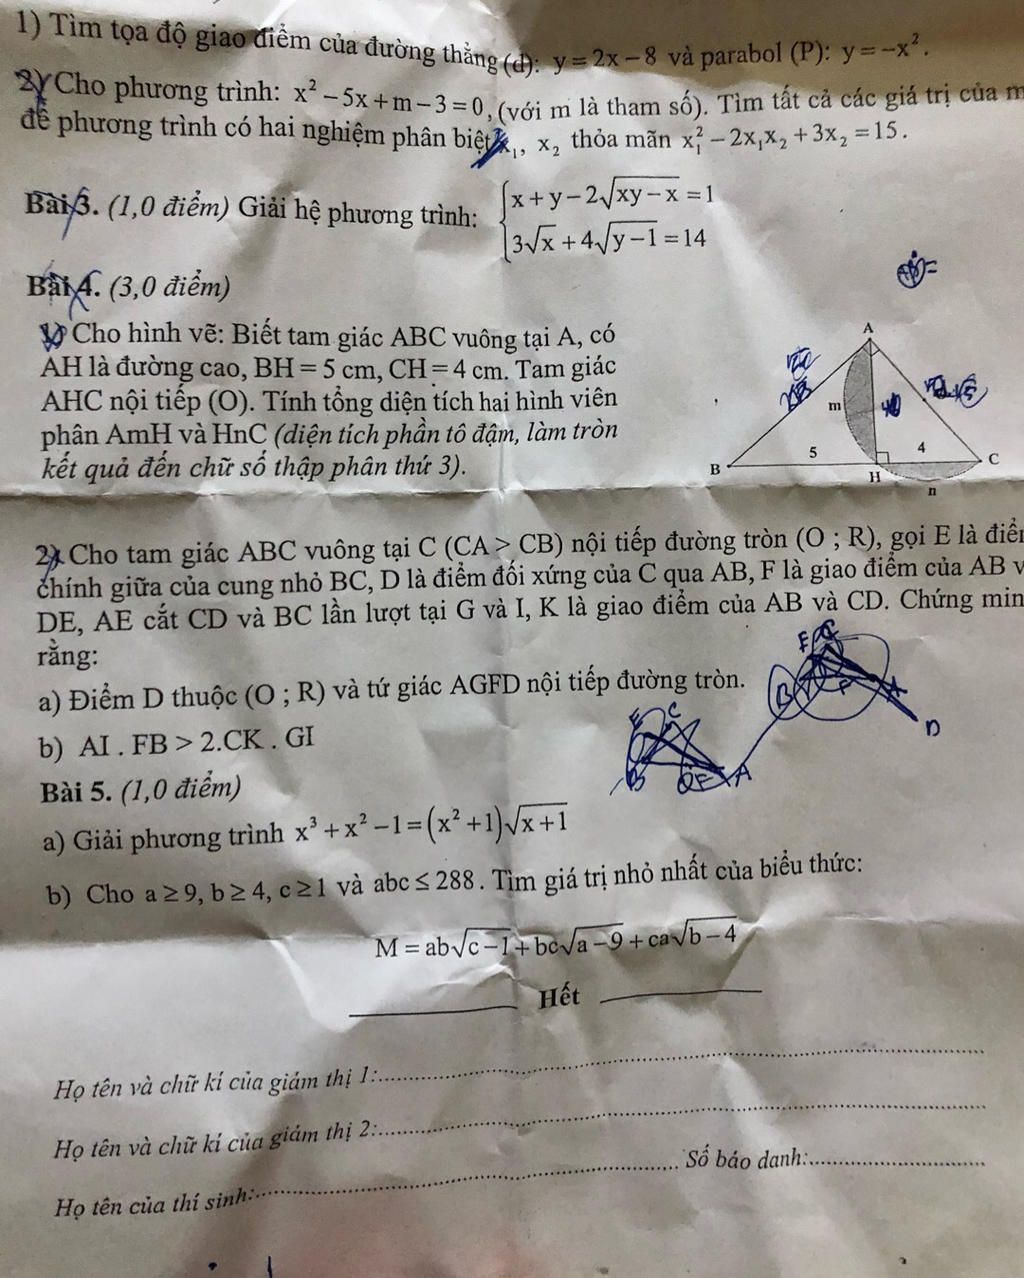 1) Tìm tọa độ giao điểm của đường thẳng (d): y = 2x − 8 và parabol (P): y = −x².
2) Cho phương trình: x² − 5x + m − 3 = 0, (với m là tham số). Tìm tất cả các giá trị của m
để phương trình có hai nghiệm phân biệt x₁, x₂ thỏa mãn x₁² − 2x₁x₂ + 3x₂ = 15.
Bài 3. (1,0 điểm) Giải hệ phương trình: { x + y − 2√(xy − x) = 1
3√x + 4√(y − 1) = 14
Bài 4. (3,0 điểm)
1) Cho hình vẽ: Biết tam giác ABC vuông tại A, có
AH là đường cao, BH = 5 cm, CH = 4 cm. Tam giác
AHC nội tiếp (O). Tính tổng diện tích hai hình viên
phân AmH và HnC (diện tích phần tô đậm, làm tròn
kết quả đến chữ số thập phân thứ 3).
A
m
5
4
B
H
C
n
2) Cho tam giác ABC vuông tại C (CA > CB) nội tiếp đường tròn (O ; R), gọi E là điể
chính giữa của cung nhỏ BC, D là điểm đối xứng của C qua AB, F là giao điểm của AB v
DE, AE cắt CD và BC lần lượt tại G và I, K là giao điểm của AB và CD. Chứng min
rằng:
a) Điểm D thuộc (O ; R) và tứ giác AGFD nội tiếp đường tròn.
b) AI . FB > 2.CK . GI
E C
B F A
B F A
D
Bài 5. (1,0 điểm)
a) Giải phương trình x³ + x² − 1 = (x² + 1)√(x + 1)
b) Cho a ≥ 9, b ≥ 4, c ≥ 1 và abc ≤ 288. Tìm giá trị nhỏ nhất của biểu thức:
M = ab√(c − 1) + bc√(a − 9) + ca√(b − 4)
Hết
Họ tên và chữ kí của giám thị 1:
Họ tên và chữ kí của giám thị 2:
Họ tên của thí sinh: Số báo danh: